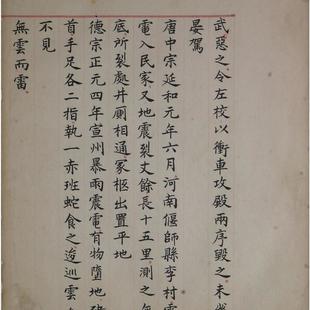 武惡之令左校以衝車攻殿兩序毀之未
晏駕
唐中宗延和元年六月河南偃師縣李村
電入民家又地震裂丈餘長十五里測之無
底所裂處井厠相通冢柩出置平地
德宗正元四年宣州暴雨震電有物墮地
首手足各二指執一赤班蛇食之逡巡雲
不見
無雲而雷